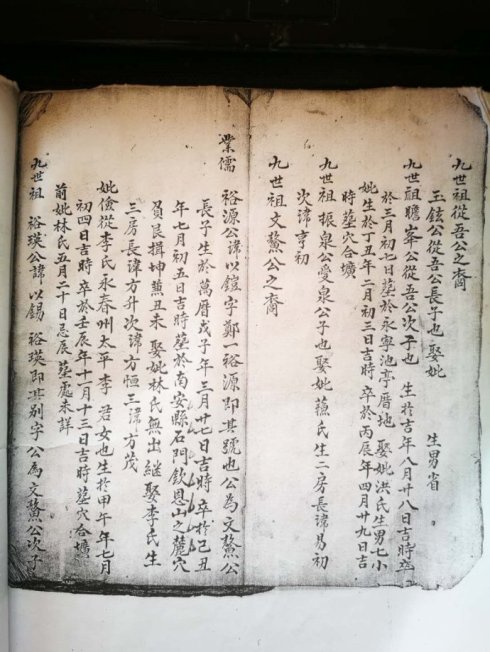 九世祖從吾公之裔
玉鉉公從吾公長子也娶妣 生男省
九世祖瞻峯公從吾公次子也 生於吉年八月廿八日吉時卒
於三月初七日塟於永寧池亭厝地 娶妣洪氏生男七小
妣生於丁丑年二月初三日吉時 卒於丙辰年四月十九日吉
時塟穴合壙
九世祖振泉公受泉公子也娶妣蘓氏生二房長諱易初
次諱亨初
九世祖文鰲公之裔
業儒 裕源公諱以鎧字鄭一裕源即其號也公為文鰲公
長子生於萬厝戊子年三月廿七日吉時 卒於己丑
年七月初五日吉時塟於南安縣石門欽恩山之麓穴
負艮揖坤兼丑未 娶妣林氏無出 継娶李氏生
三房長諱方升次諱方恒三諱方茂
妣儉從李氏永春州太平李 君女也生於甲午年七月
初四日吉時 卒於壬辰年十一月十三日吉時塟穴合壙
前妣林氏五月二十日忌辰塟處未詳
九世祖 裕瑛公諱以錫 裕瑛即其別字公為文鰲公次子